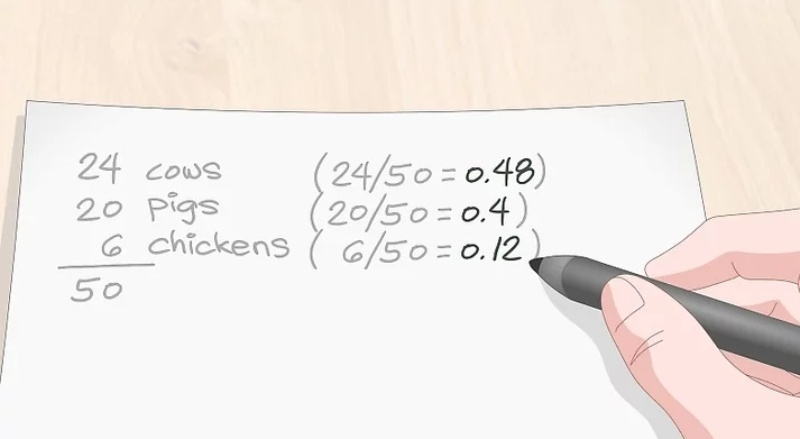 24 cows (24/50 = 0.48)
20 pigs (20/50 = 0.4)
6 chickens (6/50 = 0.12)
50